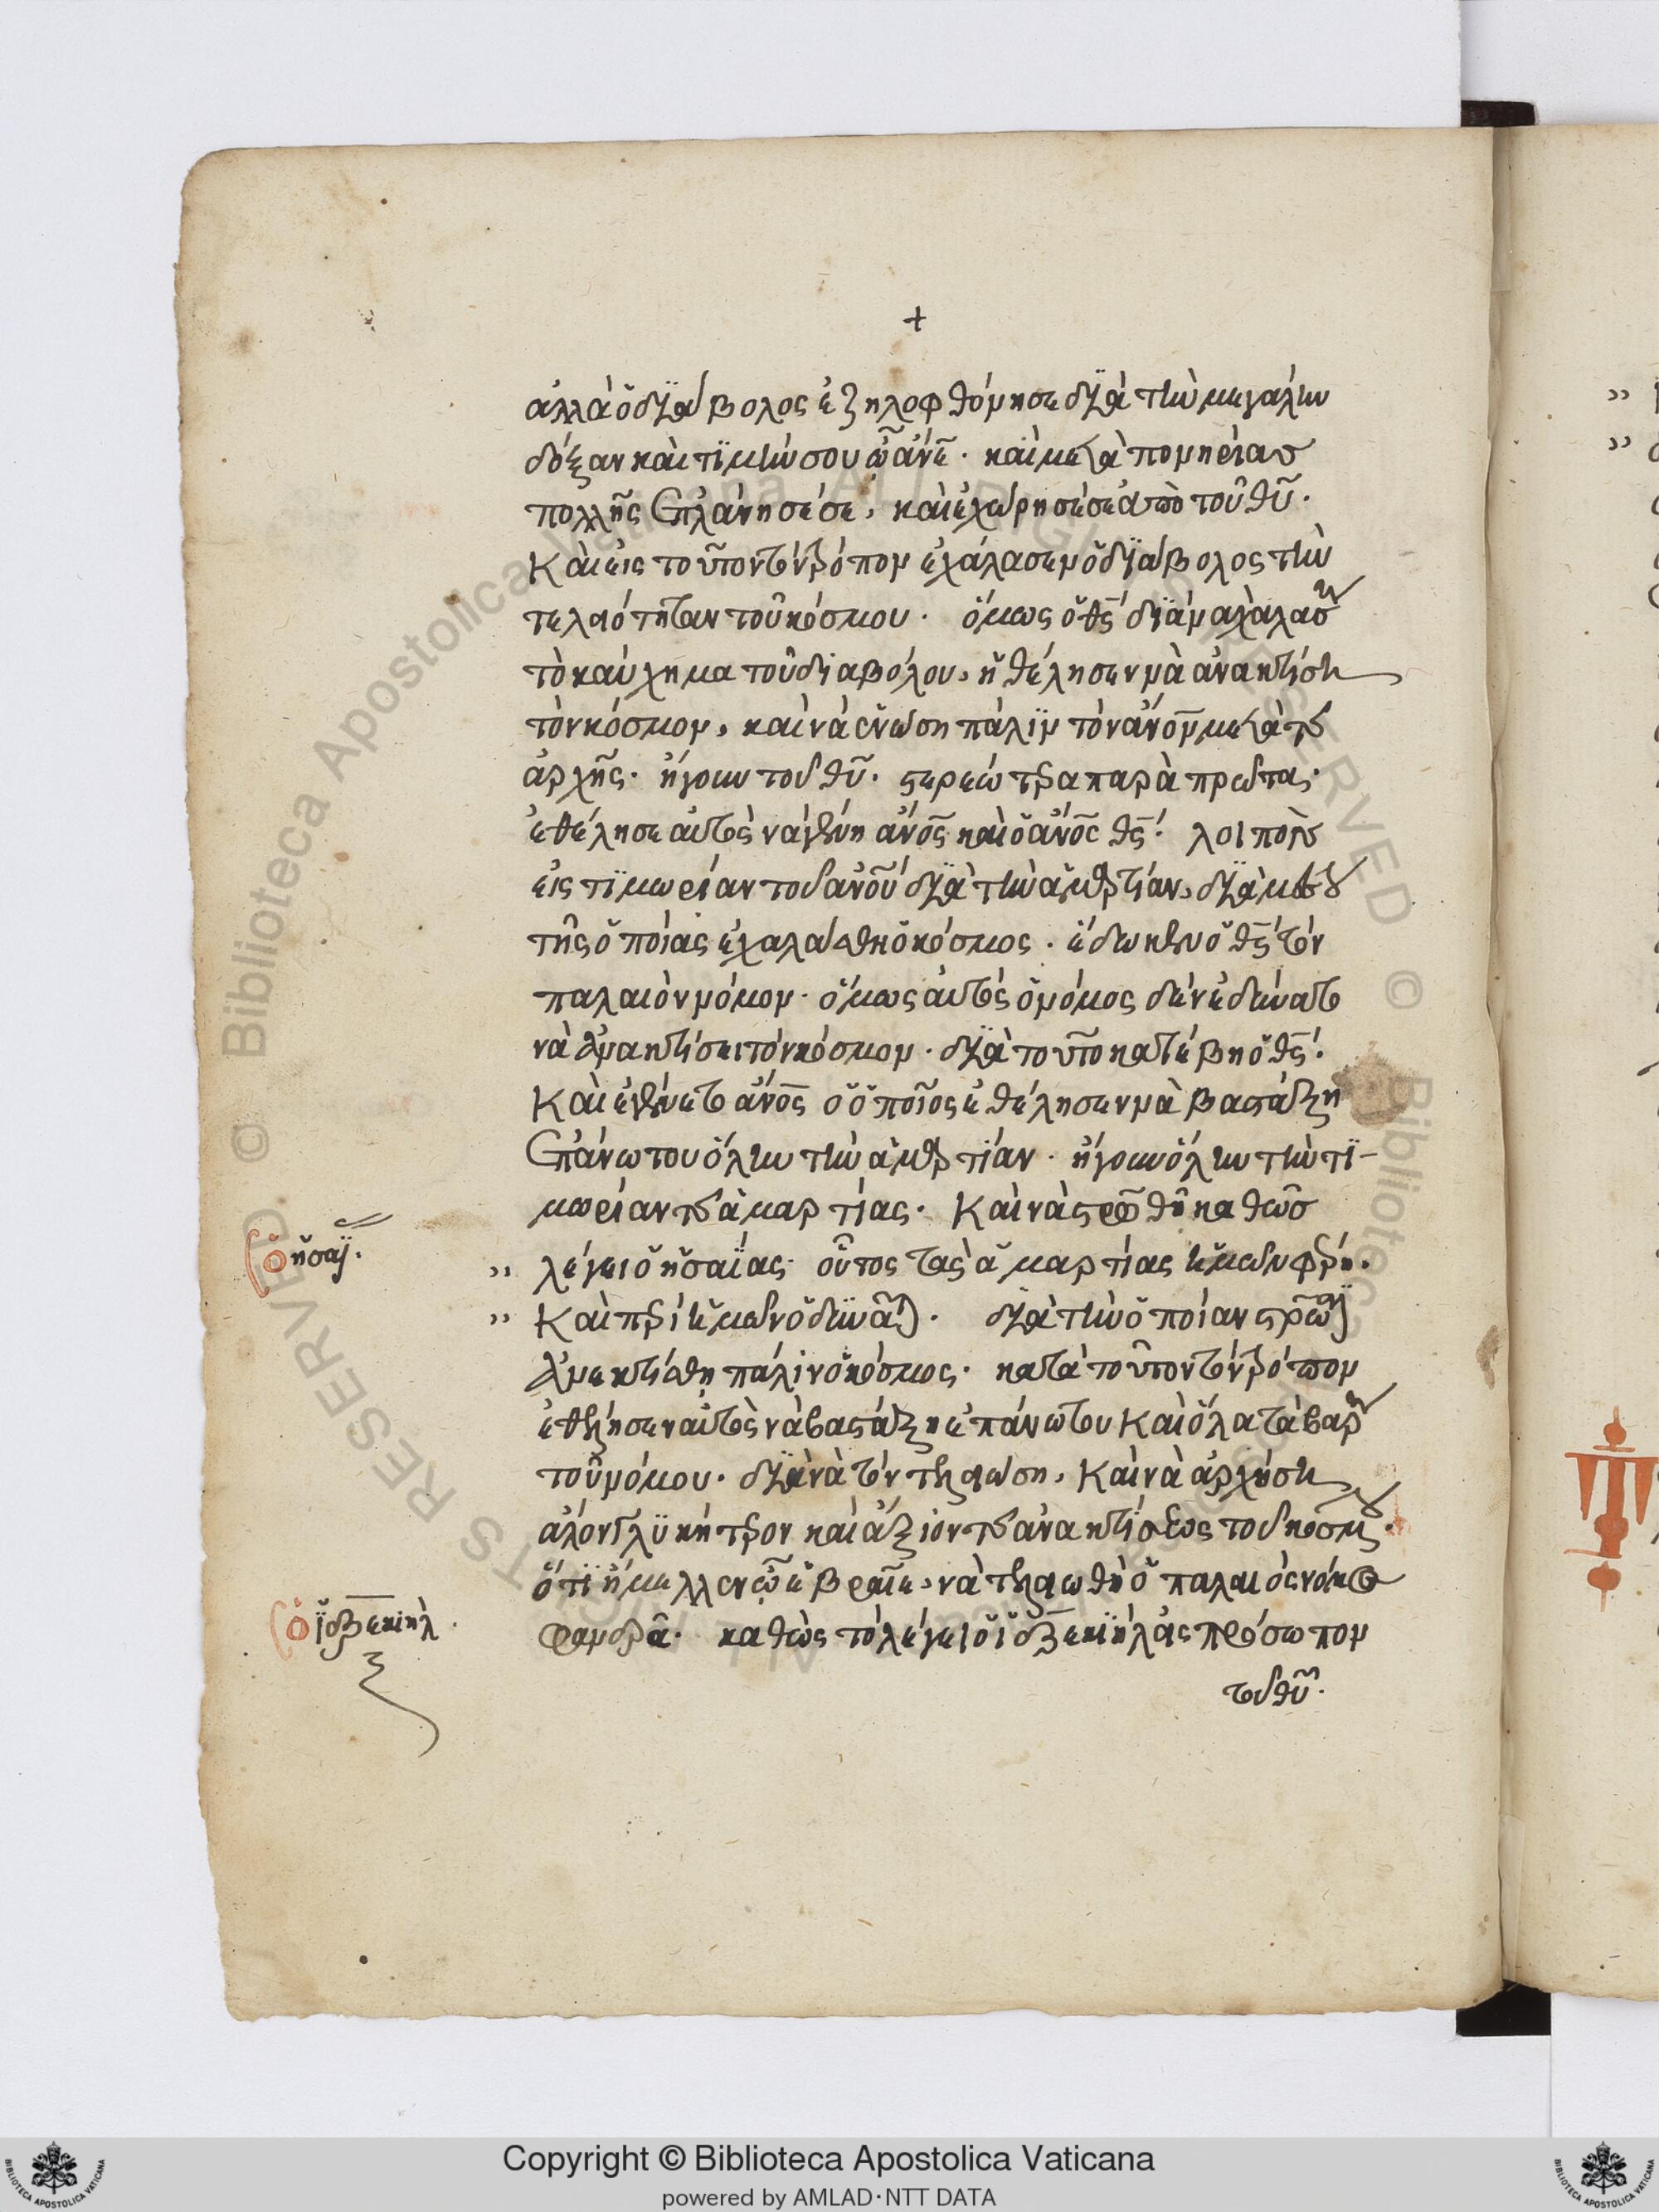 +
ἀλλὰ ὁ διάβολος ἐζηλοφθόνησε διὰ τὴν μεγάλην
δόξαν καὶ τϊμὴν σου ὦ ἄνε. καὶ μετὰ πονηρίας
πολλῆς ἐπλάνησέ σε, καὶ ἐχώρησέ σε ἀπὸ τοῦ θῦ.
Καὶ εἰς τοῦτον τὸν τρόπον ἐχάλασεν ὁ διάβολος τὴν
τελειότηταν τοῦ κόσμου. ὅμως ὁ θς διὰ νὰ χαλάση
τὸ καύχημα τοῦ διαβόλου, ἠθέλησεν νὰ ἀνακτίση
τὸν κόσμον, καὶ νὰ ἑνώση πάλϊν τὸν ἄνον μετὰ τῆς
ἀρχῆς. ἤγουν τοῦ θῦ. στερεώτερα παρὰ πρῶτας.
ἐθέλησε αὐτὸς νὰ γένη ἄνος καὶ ὁ ἄνος θς. λοιπὸν
εἰς τϊμωρίαν τοῦ ἀνου διὰ τὴν ἁμαρτίαν, διὰ μέσου
τῆς ὁποίας ἐχαλάσθη ὁ κόσμος. ἔδωκεν ὁ θς τὸν
παλαιὸν νόμον. ὅμως αὐτὸς ὁ νόμος δὲν ἐδύνατο
νὰ ἀνακτίσει τὸν κόσμον. διὰ τοῦτο κατέβη ὁ θς.
Καὶ ἐγένετο ἄνος ὁ ὁποῖος ἐθέλησεν νὰ βαστάξη
ἐπάνω του ὅλην τὴν ἁμαρτίαν. ἤγουν ὅλην τὴν τϊ-
μωρίαν τῆς ἁμαρτίας. Καὶ νὰ στρωθῆ καθὼς
ὁ ἠσαΐ.
" λέγει ὁ ἠσαΐας. οὗτος τὰς ἁμαρτίας ἡμῶν φέρει.
" Καὶ περὶ ἡμῶν ὀδυνᾶται. διὰ τὴν ὁποίαν
ἀνεκτίσθη πάλιν ὁ κόσμος. κατὰ τοῦτον τὸν τρόπον
ἐθέλησεν αὐτὸς νὰ βαστάξη ἐπάνω του καὶ ὅλα τὰ βάρη
τοῦ νόμου. διὰ νὰ τὸν τελειώση, καὶ νὰ ἀρχήση
ἄλον γλϋκήτερον καὶ ἄξιον τῆς ἀνακτίσεως τοῦ κόσμου.
ὅτι ἤμελλεν ὦ ἑβραῖε, νὰ τελειωθῆ ὁ παλαιὸς νόμος
ὁ ἰεζεκιὴλ.
φανερᾶ. καθὼς τὸ λέγει ὁ ἰεζεκιὴλ εἰς πρόσωπον
τοῦ θῦ.
Copyright © Biblioteca Apostolica Vaticana
powered by AMLAD·NTT DATA